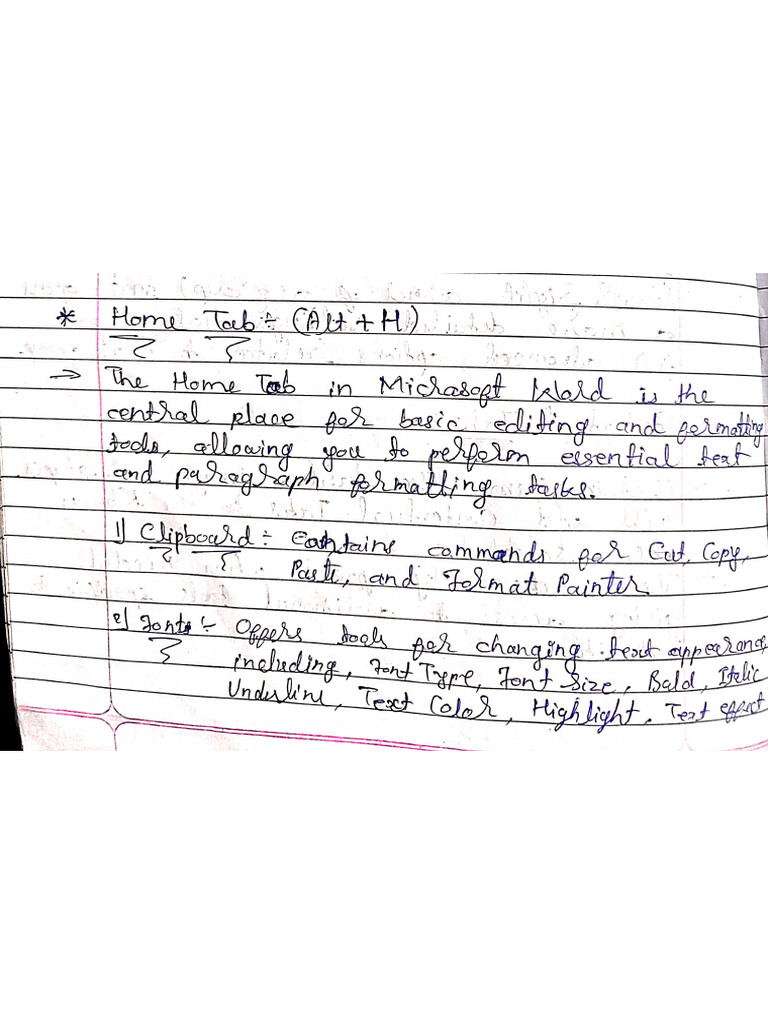 * Home Tab :- (Alt + H)
→ The Home Tab in Microsoft Word is the
central place for basic editing and formatting
tools, allowing you to perform essential text
and paragraph formatting tasks.
1) Clipboard :- Contains commands for Cut, Copy,
Paste, and Format Painter.
2) Fonts :- Offers tools for changing text appearance,
including, Font Type, Font Size, Bold, Italic
Underline, Text Color, Highlight, Text effect